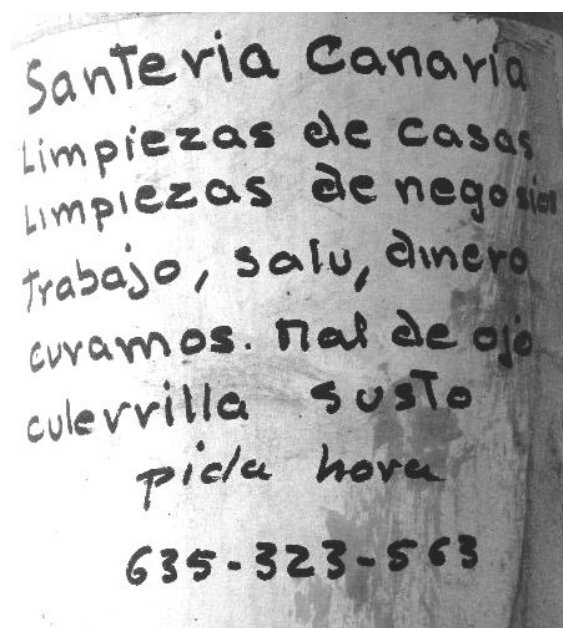 Santeria Canaria
Limpiezas de casas
Limpiezas de negosios
Trabajo, salu, dinero
curamos. Mal de ojo
culevrilla susto
pida hora
635-323-563